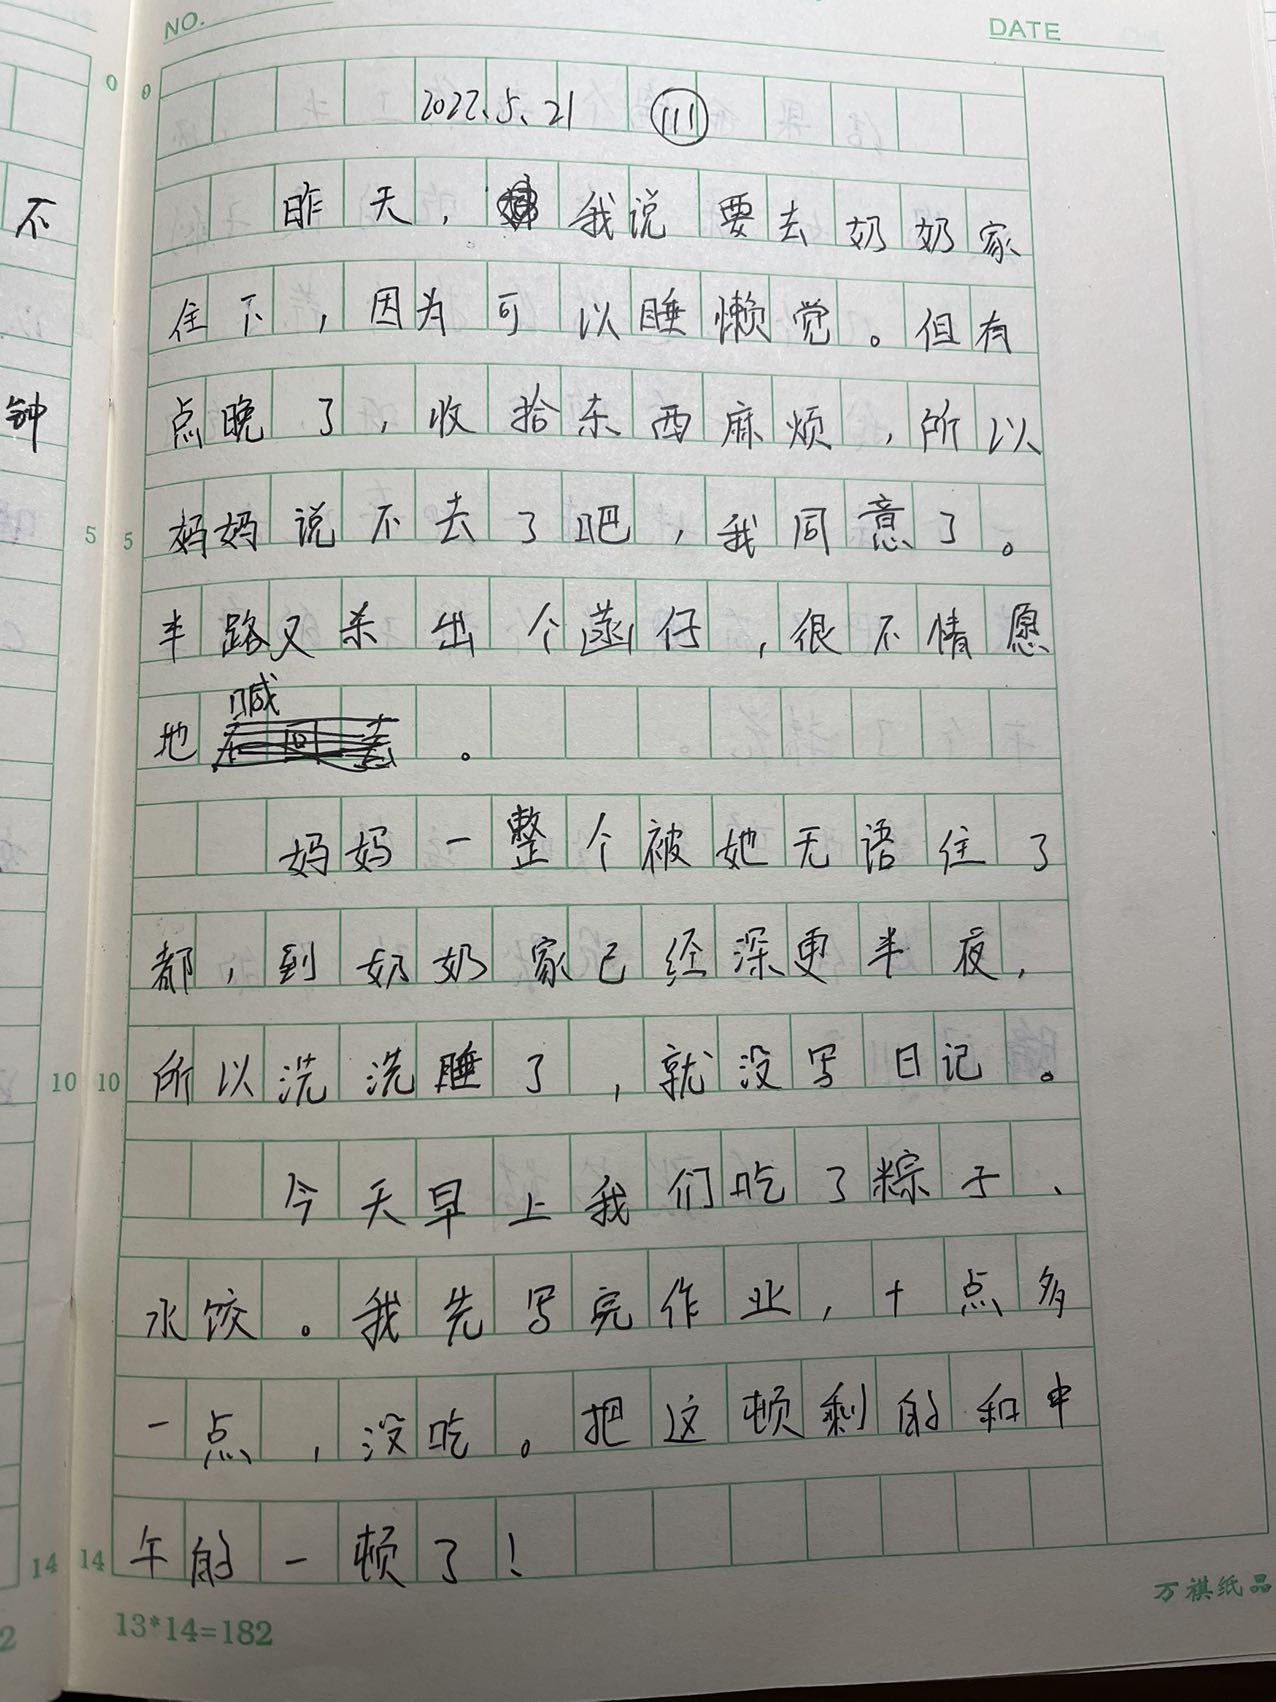 NO.
DATE
2022.5.21 111
昨天，我说要去奶奶家
住下，因为可以睡懒觉。但有
点晚了，收拾东西麻烦，所以
妈妈说不去了吧，我同意了。
半路又杀出个菡仔，很不情愿
地喊。
妈妈一整个被她无语住了
都，到奶奶家已经深更半夜，
所以洗洗睡了，就没写日记。
今天早上我们吃了粽子、
水饺。我先写完作业，十点多
一点，没吃。把这顿剩的和中
午的一顿了！
不
钟
0 0
5 5
10 10
14 14
13*14=182
万祺纸品